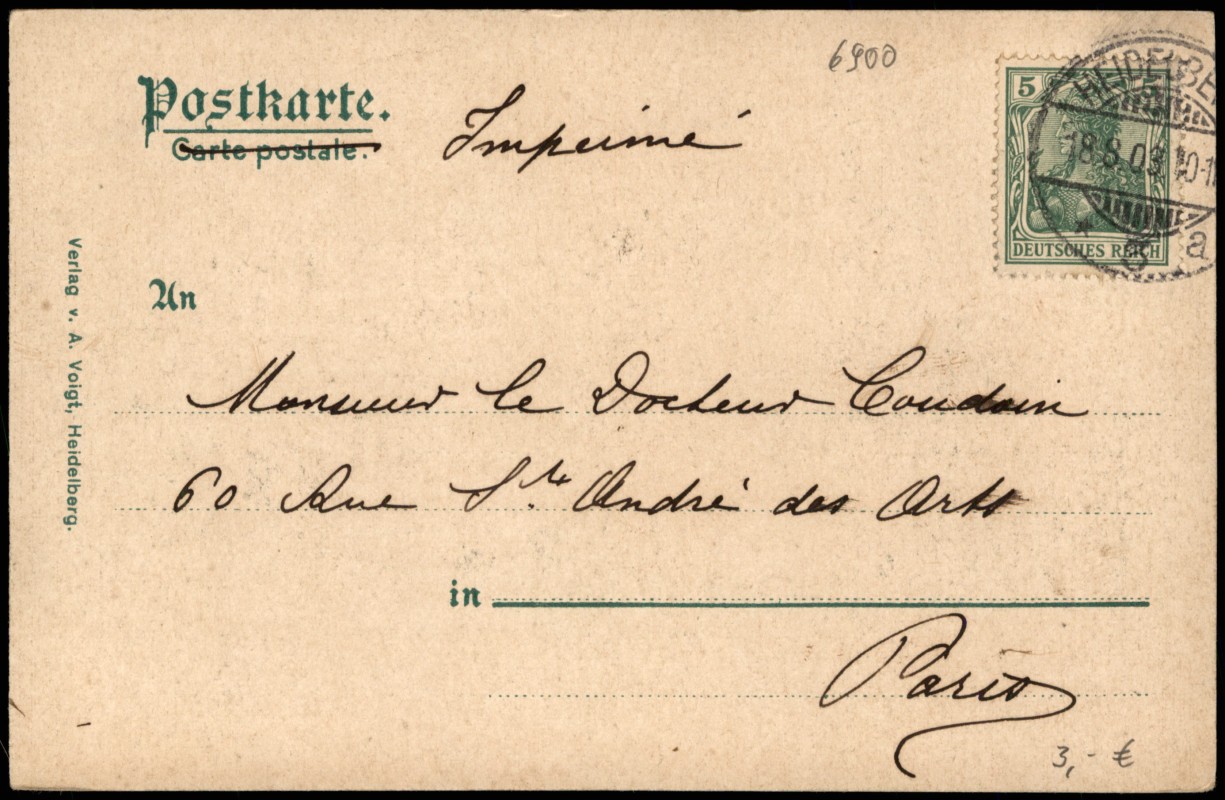 6900
Postkarte.
Carte postale.
Imprimé
5 5
DEUTSCHES REICH
HEIDELBE
18.8.03 10-1
a
An
Monsieur le Docteur Coudoin
60 Rue St. André des Arts
in
Paris
3,- €
Verlag v. A. Voigt, Heidelberg.